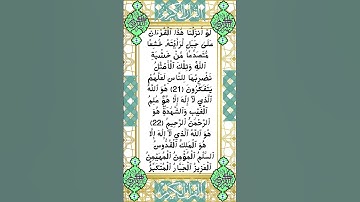 لَوْ أَنزَلْنَا هَٰذَا ٱلْقُرْءَانَ
عَلَىٰ جَبَلٍ لَّرَأَيْتَهُۥ خَٰشِعًا
مُّتَصَدِّعًا مِّنْ خَشْيَةِ
ٱللَّهِ وَتِلْكَ ٱلْأَمْثَٰلُ
نَضْرِبُهَا لِلنَّاسِ لَعَلَّهُمْ
يَتَفَكَّرُونَ (21) هُوَ ٱللَّهُ
ٱلَّذِي لَآ إِلَٰهَ إِلَّا هُوَ عَٰلِمُ
ٱلْغَيْبِ وَٱلشَّهَٰدَةِ هُوَ
ٱلرَّحْمَٰنُ ٱلرَّحِيمُ (22)
هُوَ ٱللَّهُ ٱلَّذِي لَآ إِلَٰهَ إِلَّا
هُوَ ٱلْمَلِكُ ٱلْقُدُّوسُ
ٱلسَّلَٰمُ ٱلْمُؤْمِنُ ٱلْمُهَيْمِنُ
ٱلْعَزِيزُ ٱلْجَبَّارُ ٱلْمُتَكَبِّرُ